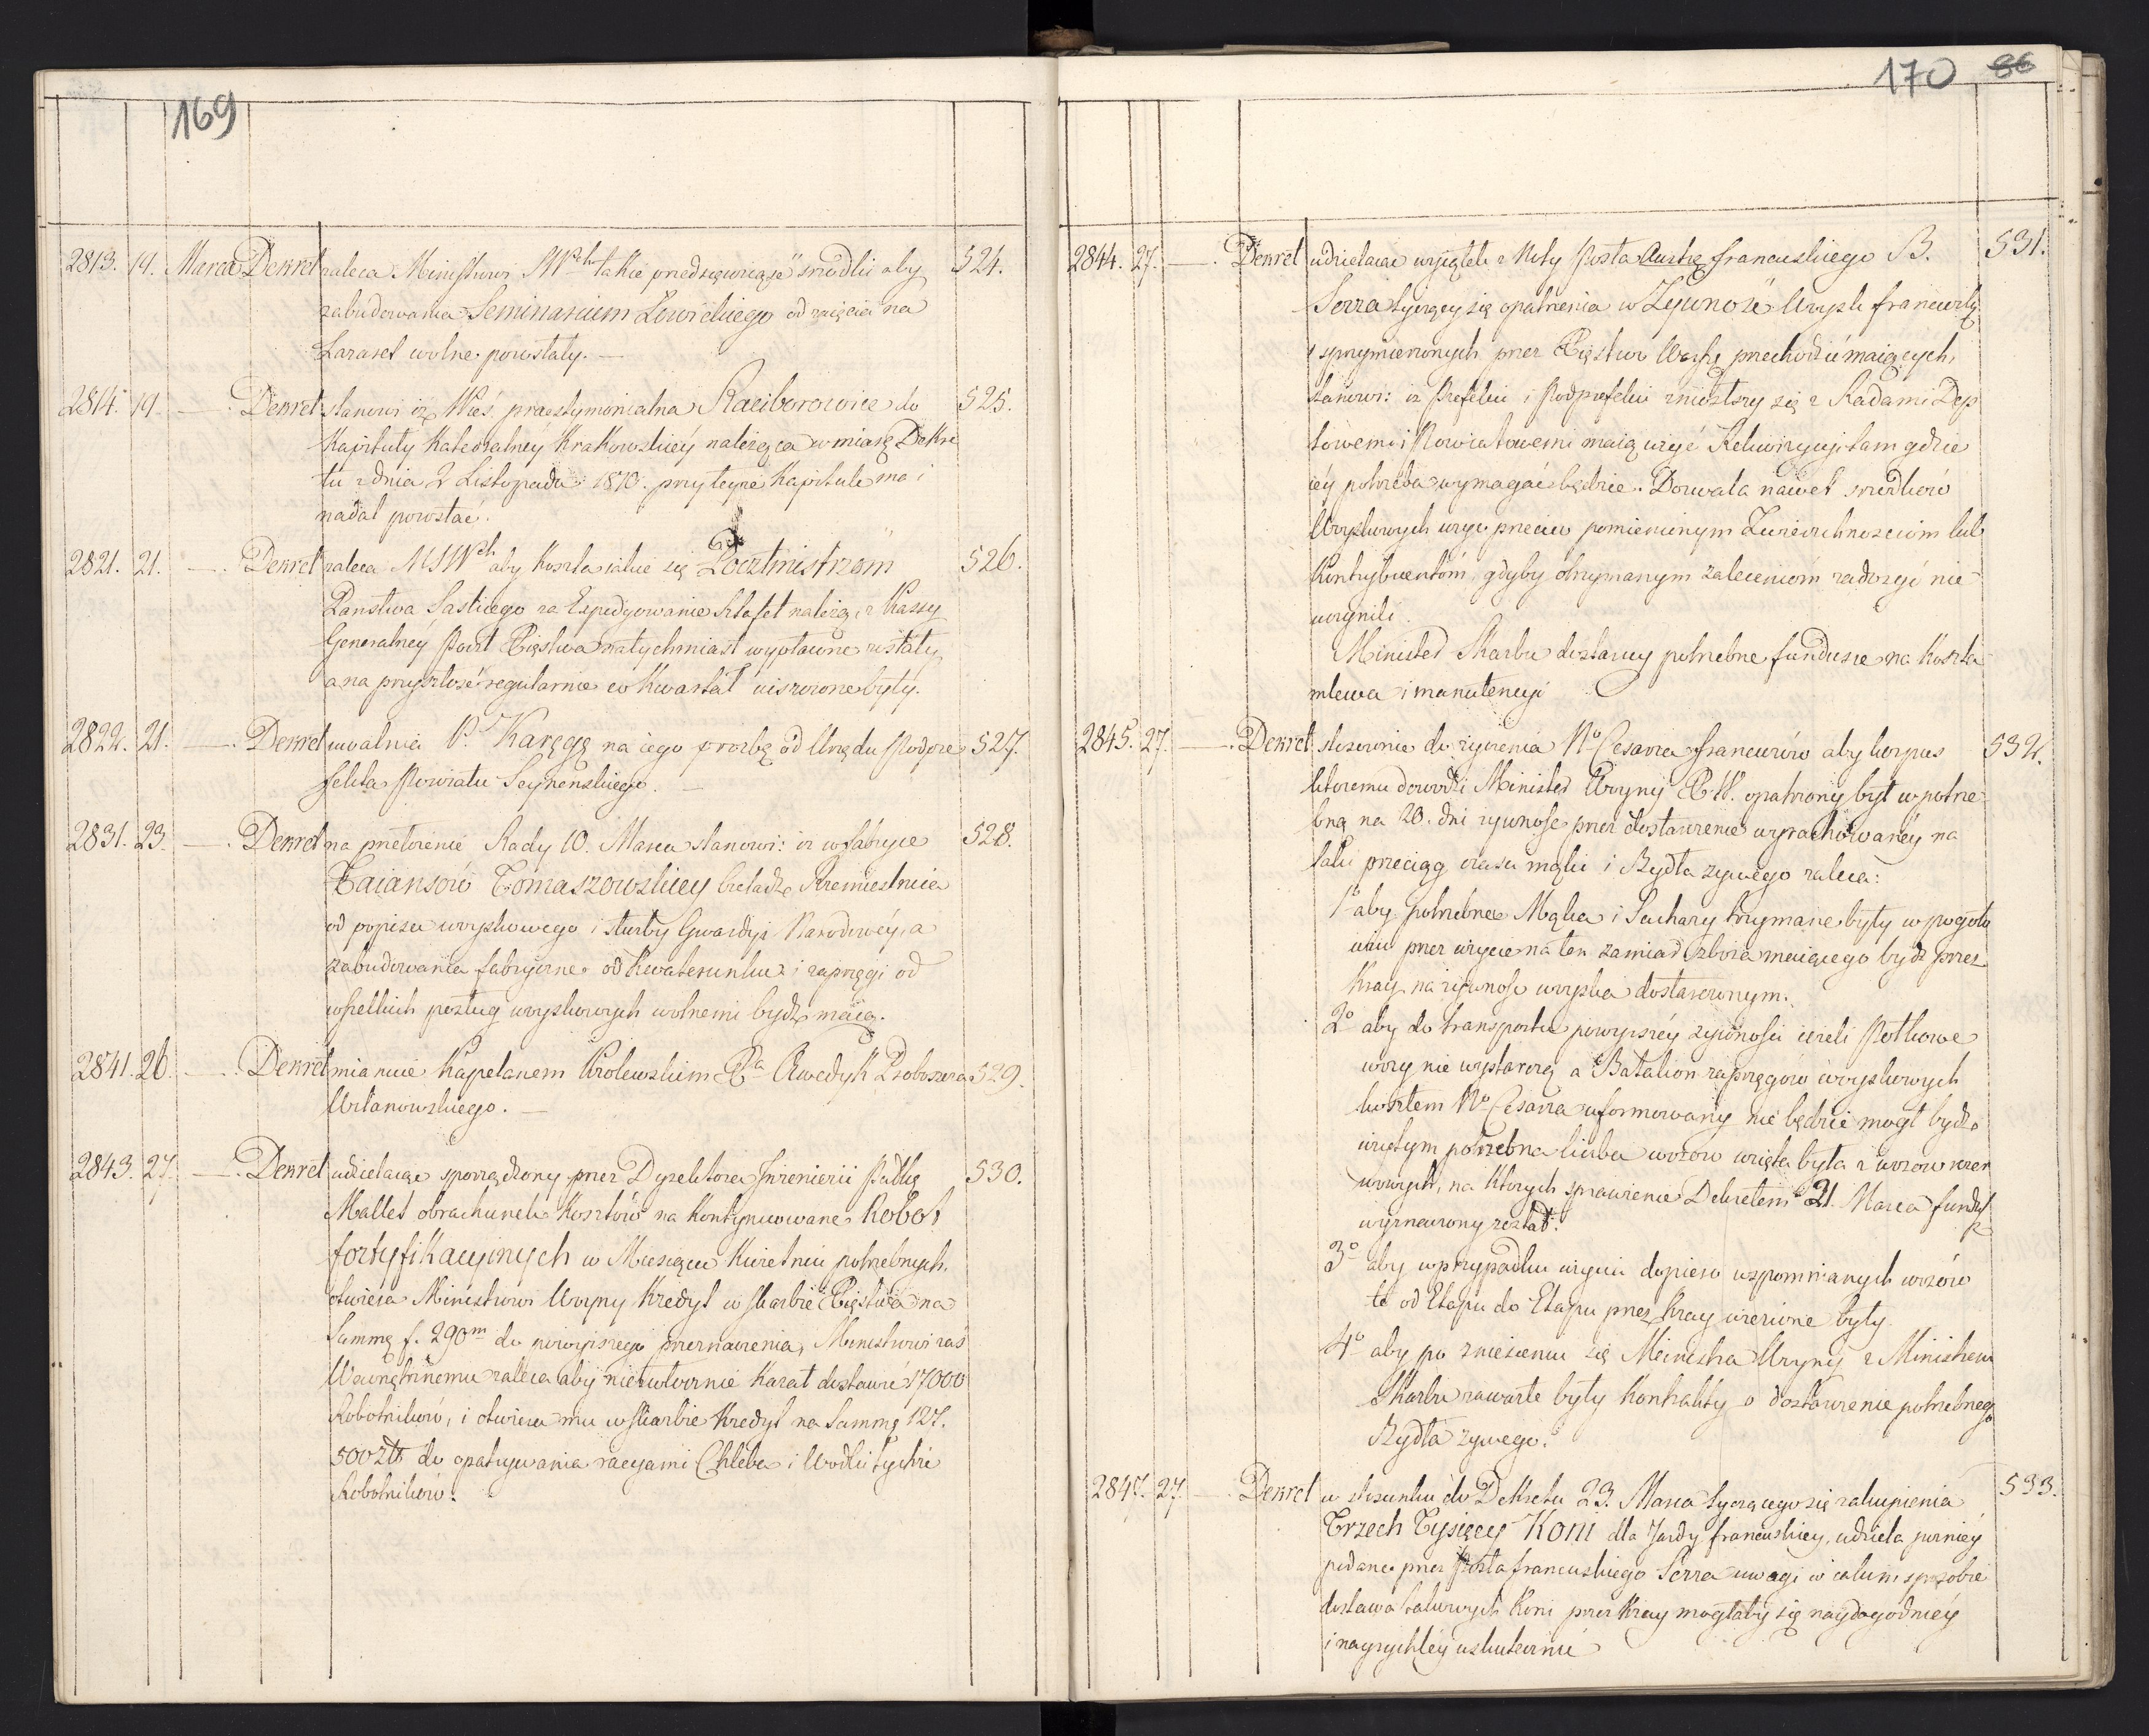 169
2813. 19. Marca Dekret zaleca Ministrowi SWch takie przedsięwziąść srodki aby 524.
zabudowania Seminarium Lowickiego od zaięcia na
Lazaret wolne powstały. —
2814. 19. — Dekret stanowi iż Wieś praestymonialna Raciborowice do 525.
Kapituły Katedralnéy Krakowskiéy należąca w miarę Dekre
tu z dnia 2 Listopada 1810. przy teyże Kapitule ma i
nadal powstać.
2821. 21. — Dekret zaleca MSWch aby koszta iakie się Pocztmistrzom 526.
Panstwa Saskiego za Expedyowanie Sztafet należą, z Kassy
Generalnéy Poczt Xięstwa natychmiast wypłacone zostały
a na przyszłość regularnie co kwartał uiszczone były.
2822. 21. — Dekret uwalnia P. Karęgę na iego prozbę od Urzędu Podpre 527.
fekta Powiatu Seynenskiego. —
2831. 23. — Dekret na przełożenie Rady 10. Marca stanowi: iż w fabryce
528.
Faiansów Tomaszowskiey Czeladź Rzemieslnicza
od popisu woyskowego i służby Gwardyi Narodowéy, a
zabudowania fabryczne od kwaterunku i zaprzęgi od
wszelkich posług woyskowych wolnemi bydź maią.
2841. 26. — Dekret mianuie Kapelanem Krolewskim Xa Proboszcza 529.
2843. 27. — Dekret udzielaiąc sporządzony przez Dyrektora Inżenierii Pułkę 530.
Mallet obrachunek kosztów na kontynuowanie Robot
fortyfikacyinych w Miesiącu Kwietniu potrzebnych.
otwiera Ministrowi Woyny Kredyt w skarbie Xięstwa na
Summę f. 290m do powyższego przeznaczenia, Ministrowi zaś
Wewnętrznemu zaleca aby niezwłocznie kazał dostawić 17000
Robotników, i otwiera mu w skarbie kredyt na Summę 127.
500 Złt do opatrywania racyami Chleba i Wodki tychże
Robotników.
170 86
2844. 27. — Dekret udzielaiąc wyiątek z Noty Posła Austrę francuskiego B. 531.
Serra tyczącey się opatrzenia w Zywność Woysk francuzkę
i sprzymierzonych przez Xięstwo Warszę przechodzić maiących,
stanowi: iż Prefekci i Podprefekci zniosłszy się z Radami Dep
towemi i Powiatowemi maią użyć Rekwizycyi tam gdzie
iéy potrzeba wymagać będzie. Dozwala nawet srodków
Woyskowych użyć przeciw pomienionym Zwierzchnościom lub
Kontrybuentom, gdyby otrzymanym zaleceniom zadosyć nie
uczynili.
Minister Skarbu dostarczy potrzebne fundusze na koszta
mlewa i manutencyi
2845. 27. — Dekret stosownie do życzenia No Cesarza Francuzów aby korpus 532.
ktoremu dowodzi Minister Woyny X. W. opatrzony był w potrze
bną na 20. dni żywność przez dostawienie wyrachowanéy na
taki przeciąg czasu mąki i Bydła żywego zaleca:
1o aby potrzebna Mąka i Suchary trzymane były w pogoto
wiu przez użycie na ten zamiar zboża maiącego bydź przez
Kray na żywność woyska dostarczonym.
2o aby do transportu powyższéy żywności iezeli Pułkowe
wozy nie wystarczą a Batalion zaprzęgów woyskowych
kosztem No Cesarza uformowany nie będzie mogł bydź
użytym potrzebna liczba wozów wzięta była z wozów rezer
wowych, na których sprawienie Dekretem 21. Marca fundusz
wyznaczony został.
3o aby w przypadku użycia dopiero wspomnianych wozów
te od Etapu do Etapu przez Kray wiezione były.
4o aby po zniesieniu się Ministra Woyny z Ministrem
Skarbu zawarte były kontrakty o dostawienie potrzebnego
Bydła żywego.
2847. 27. — Dekret w stosunku do Dekretu 23. Marca tyczącego się zakupienia 533.
Trzech Tysięcy Koni dla Jazdy francuskiey, udziela pozniéy
podane przez Posła francuskiego Serra uwagi w iakim sposobie
dostawa takowych Koni przez Kray mogłaby się naydogodniéy
i nayrychléy uskutecznić